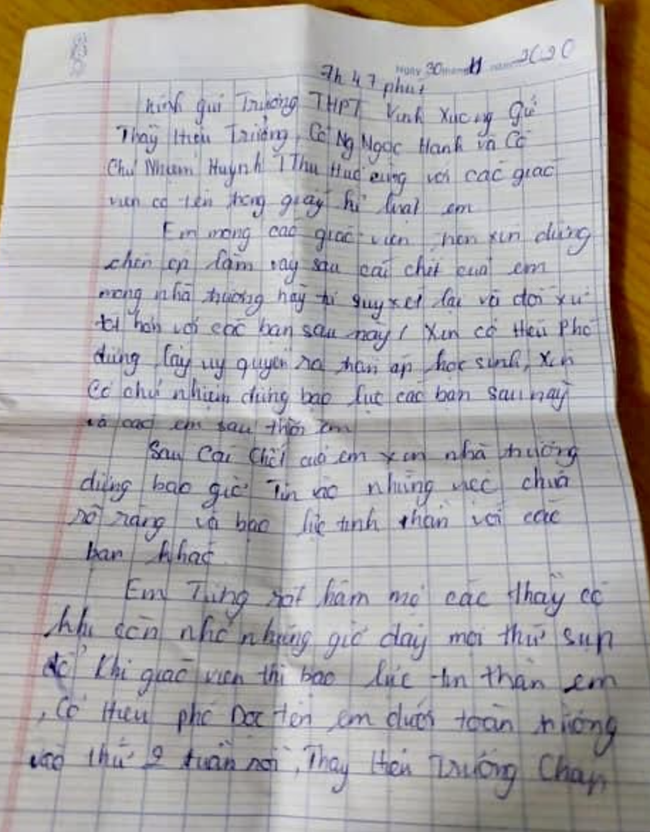 Ngày 30 tháng 11 năm 2020
7h 47 phút
kính gửi Trường THPT Vĩnh Xương Gửi
Thầy Hiệu Trưởng, Cô Ng Ngọc Hạnh và Cô
Chủ Nhiệm Huỳnh T Thu Huệ cùng với các giáo
viên có tên trong giấy kỉ luật em
Em mong các giáo viên xin đừng
chèn ép lắm vậy sau cái chết của em
mong nhà trường hãy suy xét lại và đối xử
tốt hơn với các bạn sau này! Xin cô Hiệu Phó
đừng lấy uy quyền ra chèn ép học sinh, xin
Cô chủ nhiệm đừng bạo lực các bạn sau này
và các em sau thời em
Sau cái chết của em xin nhà trường
đừng bao giờ Tin vào những việc chưa
rõ ràng và bạo lực tinh thần với các
bạn khác
Em Từng rất hâm mộ các thầy cô
khi còn nhỏ nhưng giờ đây mọi thứ sụp
đổ khi giáo viên thì bạo lực tin thần em
, Cô Hiệu phó Đọc tên em dưới toàn trường
vào thứ 2 tuần rồi, Thầy Hiệu Trưởng Chấp